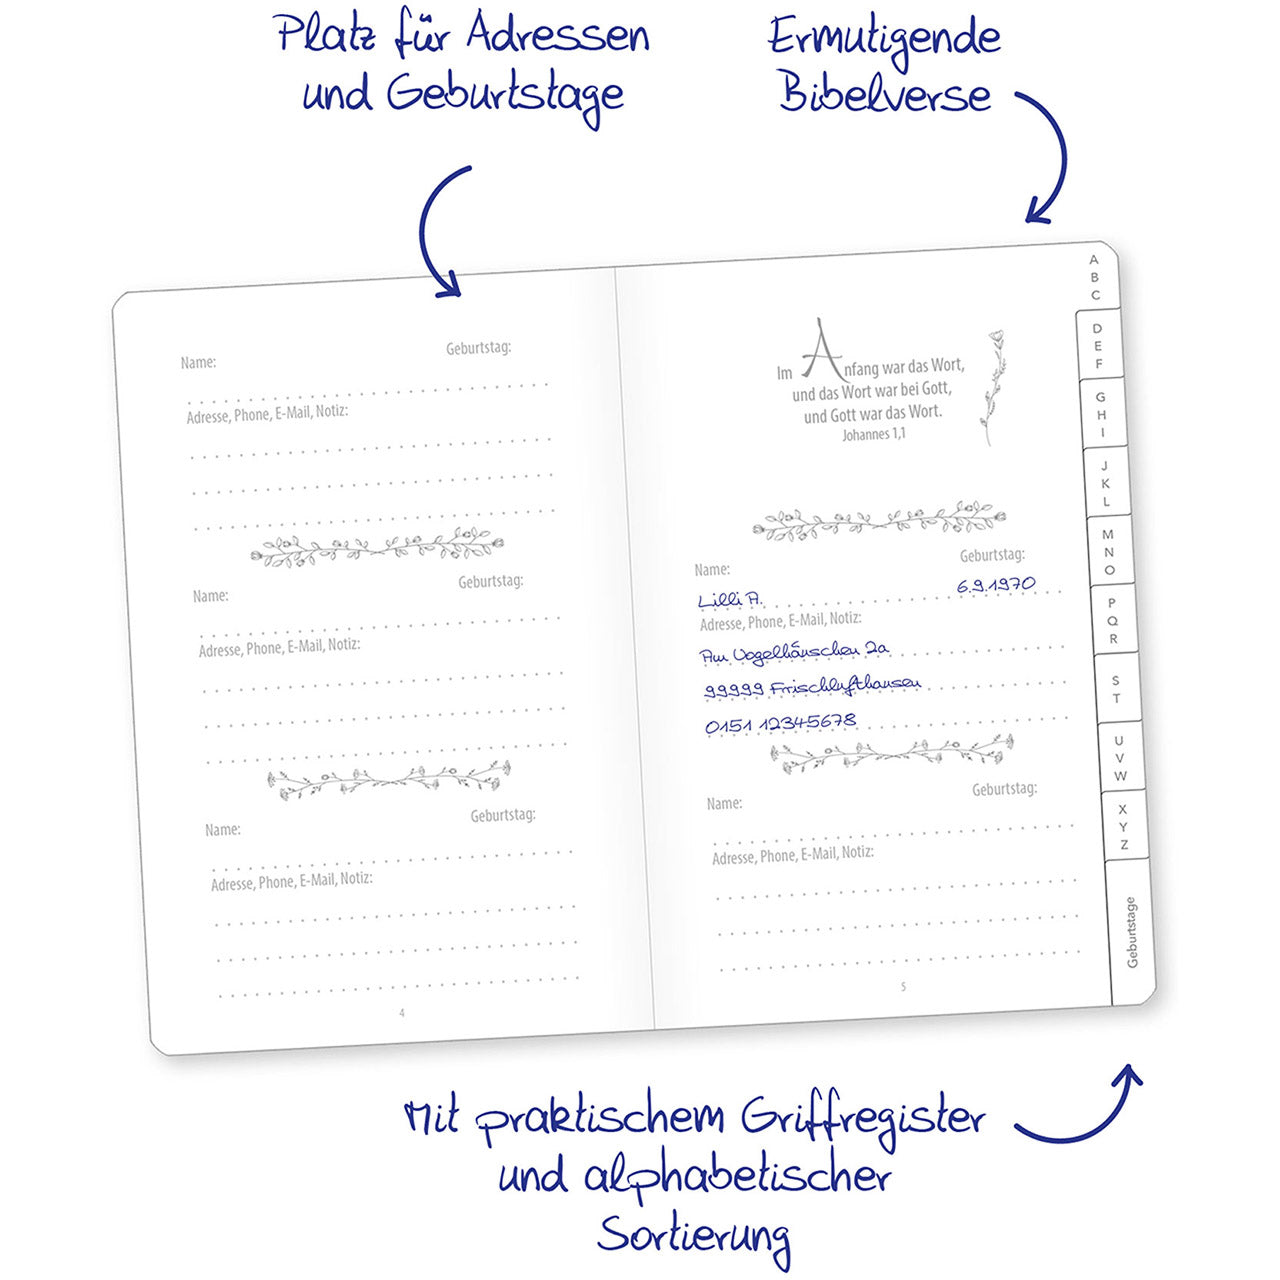 Platz für Adressen
und Geburtstage
Ermutigende
Bibelverse
Name:
Geburtstag:
Adresse, Phone, E-Mail, Notiz:
Name:
Geburtstag:
Adresse, Phone, E-Mail, Notiz:
Name:
Geburtstag:
Adresse, Phone, E-Mail, Notiz:
4
Im Anfang war das Wort,
und das Wort war bei Gott,
und Gott war das Wort.
Johannes 1,1
Name:
Geburtstag:
Lilli A.
6.9.1970
Adresse, Phone, E-Mail, Notiz:
Am Vogelhäuschen 2a
99999 Frischlufthausen
0151 12345678
Name:
Geburtstag:
Adresse, Phone, E-Mail, Notiz:
5
A
B
C
D
E
F
G
H
I
J
K
L
M
N
O
P
Q
R
S
T
U
V
W
X
Y
Z
Geburtstage
Mit praktischem Griffregister
und alphabetischer
Sortierung